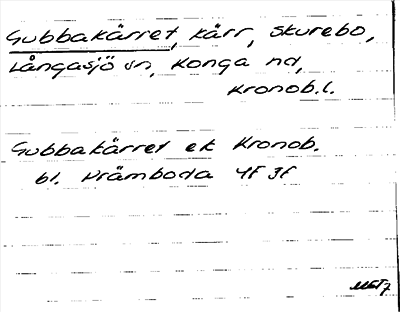 Gubbakärret, kärr, Skurebo,
Långasjö sn, Konga hd,
Kronob. l.
Gubbakärret ek Kronob.
bl. Vrämboda 4f 3f